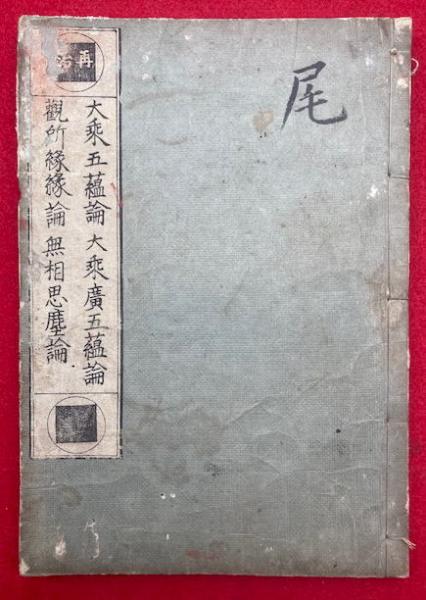 尾
再治
大乘五蘊論 大乘廣五蘊論
觀所緣緣論 無相思塵論